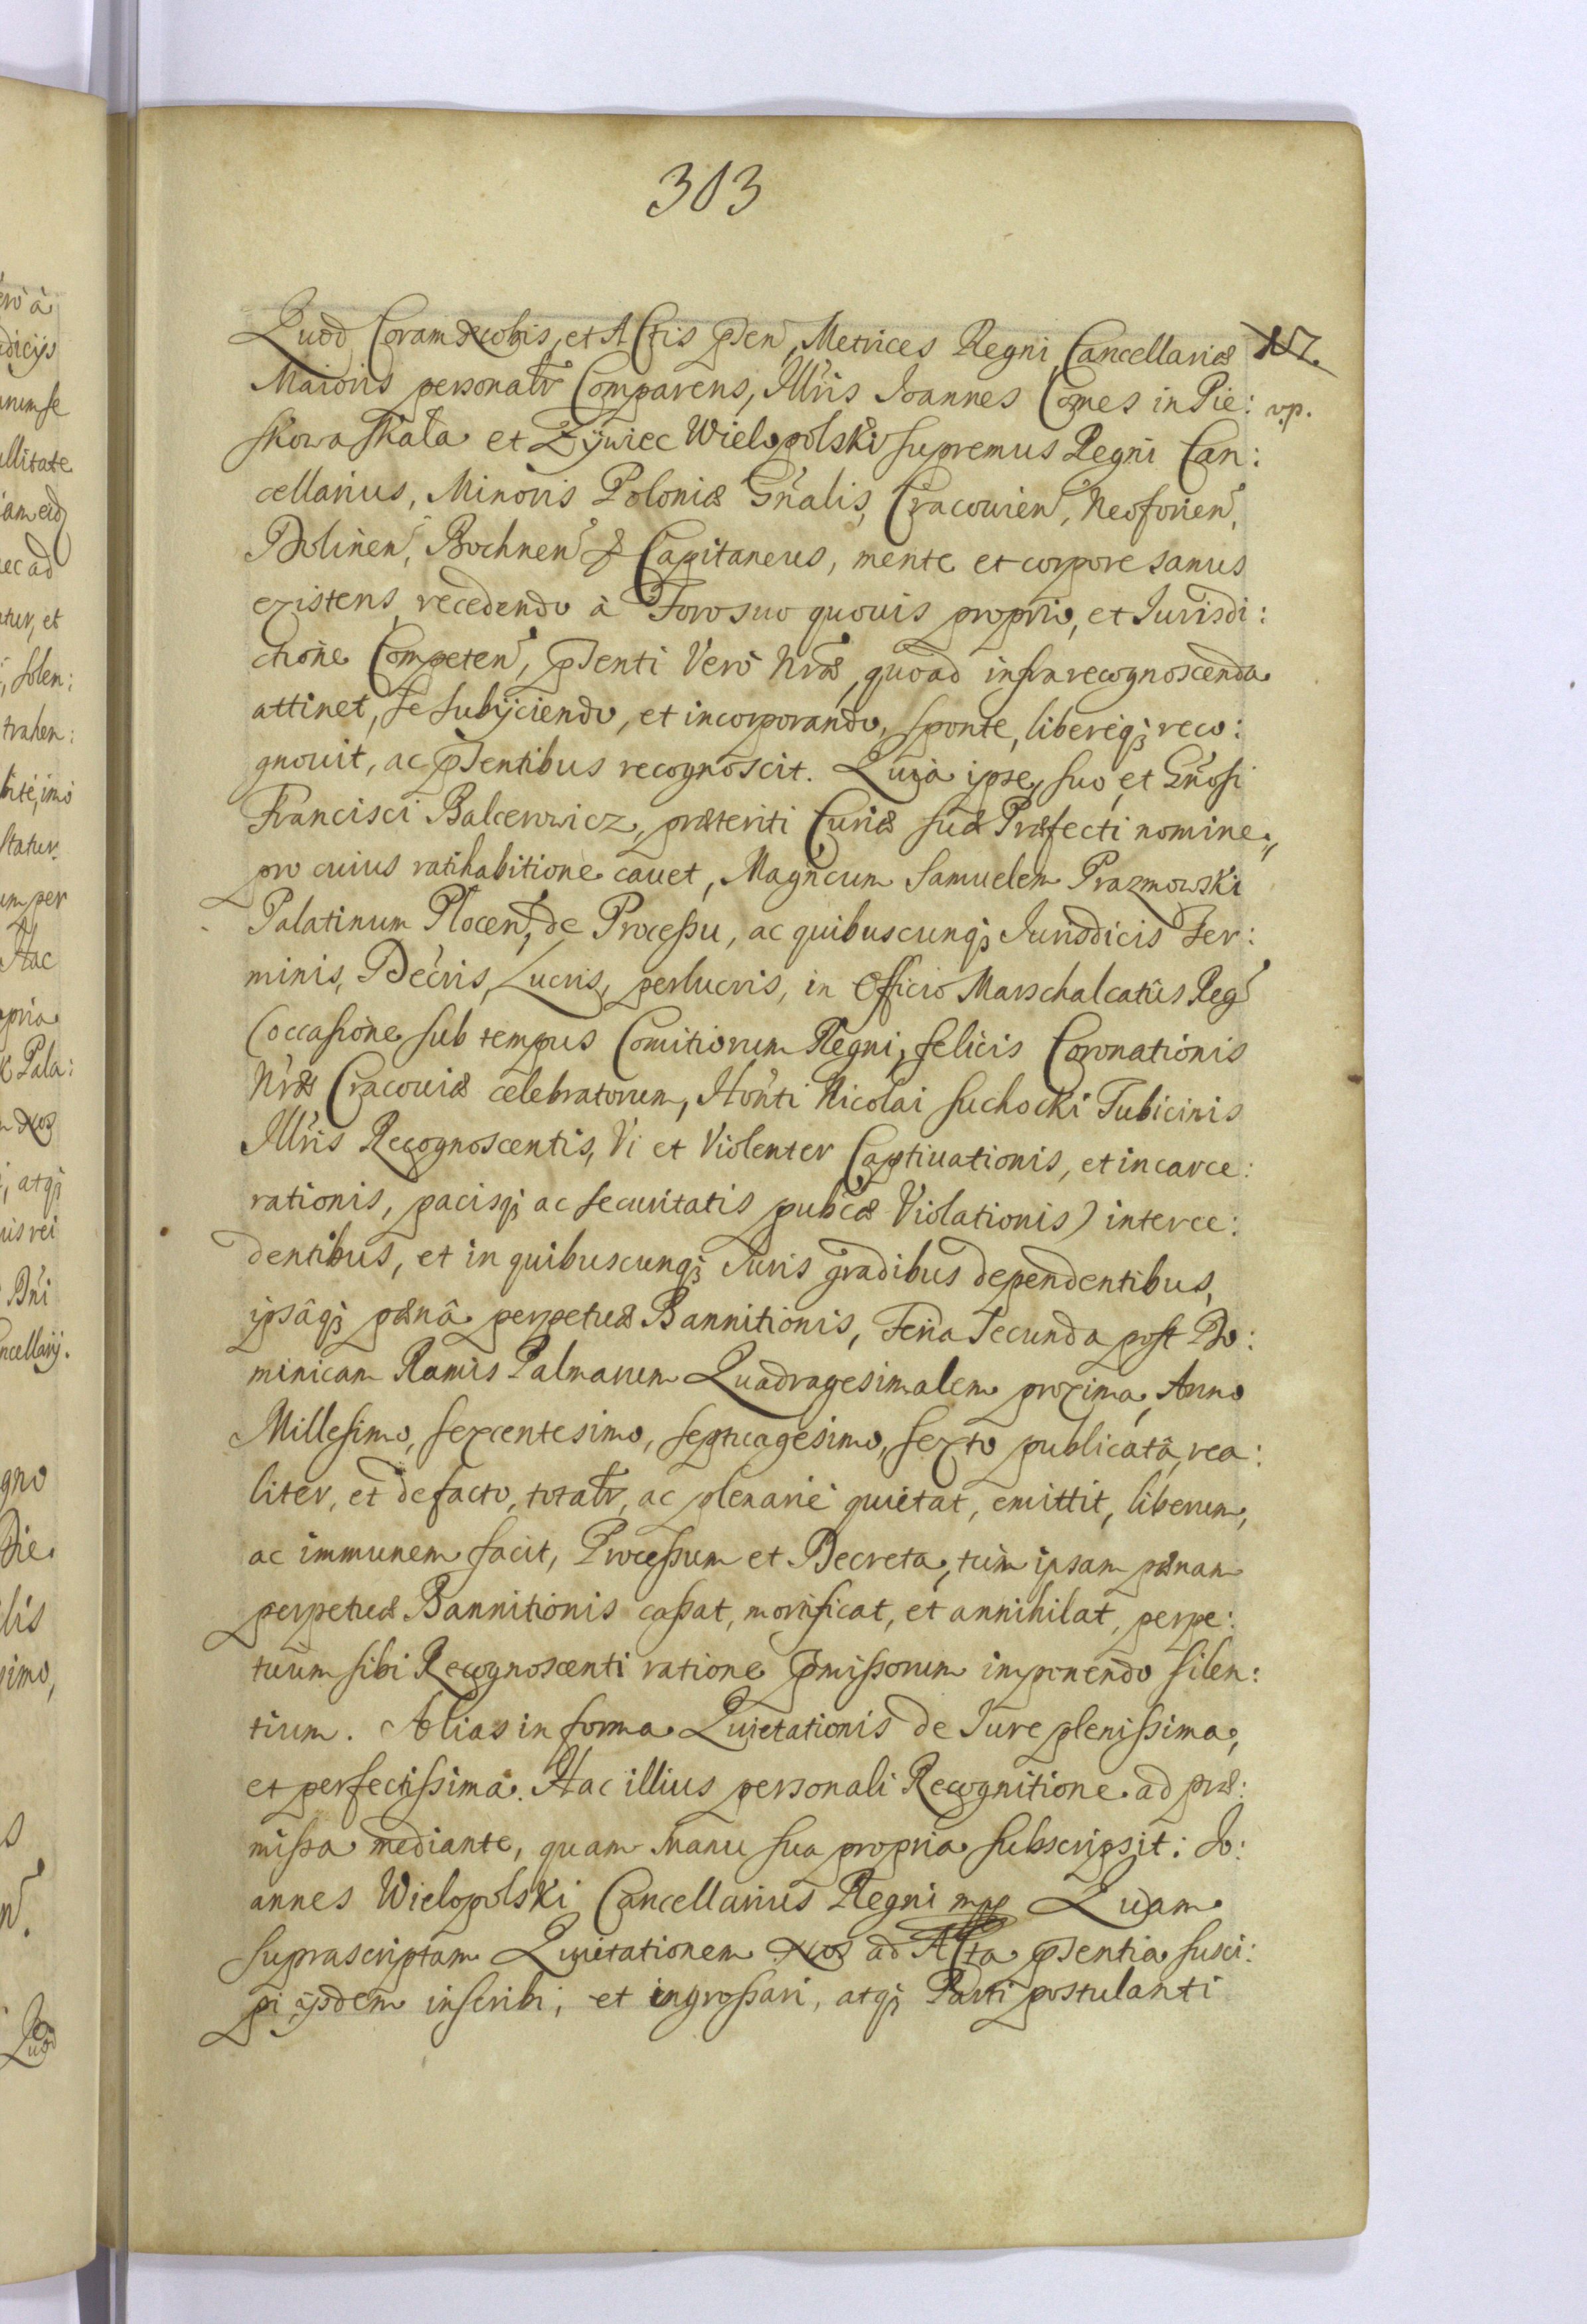 303
Quod Coram Nobis, et Actis pñen, Metrices Regni Cancellariæ
Maioris personalr Comparens, Illris Joannes Comes in Pie:
skowa skała et Zÿwiec Wielopolski supremus Regni Can:
cellarius, Minoris Poloniæ Gnalis, Cracouien, Neoforien,
Dolinen, Bochnen & Capitaneus, mente et corpore sanus
existens, recedendo à Foro suo quouis proprio, et Jurisdi:
ctione Competen, pñenti Verò Nræ, quoad infra recognoscenda
attinet, se subÿciendo, et incorporando, sponte, libereq; reco:
gnouit, ac pñentibus recognoscit. Quia ipse, suo, et Gnosi
Francisci Balcerowicz, præteriti Curiæ suæ Præfecti nomine,
pro cuius ratihabitione cauet, Magncum Samuelem Prazmowski
Palatinum Płocen, de Processu, ac quibuscunq; Jurisdicis Ter:
minis, Decris, Lucris, perlucris, in Officio Marschalcatûs Reg
(occasione sub tempus Comitiorum Regni, felicis Coronationis
Nræ Cracouiæ celebratorum, Honti Nicolai Suchocki Tubicinis
Illris Recognoscentis, Vi et Violenter Captiuationis, et incarce:
rationis, pacisq; ac securitatis pubcæ Violationis) interce:
dentibus, et in quibuscunq; Juris gradibus dependentibus,
ipsâq; pænâ perpetuæ Bannitionis, Feria Secunda post Do:
minicam Ramis Palmarum Quadragesimalem proxima, Anno
Millesimo, sexcentesimo, septuagesimo, sexto publicatâ, rea:
liter, et de facto, totalr, ac plenariè quietat, emittit, liberum,
ac immunem facit, Processum et Decreta, tùm ipsam pænam
perpetuæ Bannitionis cassat, mortificat, et annihilat, perpe:
tuum sibi Recognoscenti ratione pmissorum imponendo silen:
tium. Alias in forma Quietationis de Jure plenissima,
et perfectissima. Hac illius personali Recognitione ad præ:
missa mediante, quam manu sua propria subscripsit: Jo:
annes Wielopolski Cancellarius Regni mpp Quam
suprascriptam Quietationem Nos ad Acta pñentia susci:
pi ijsdem inscribi, et ingrossari, atq; Parti postulanti